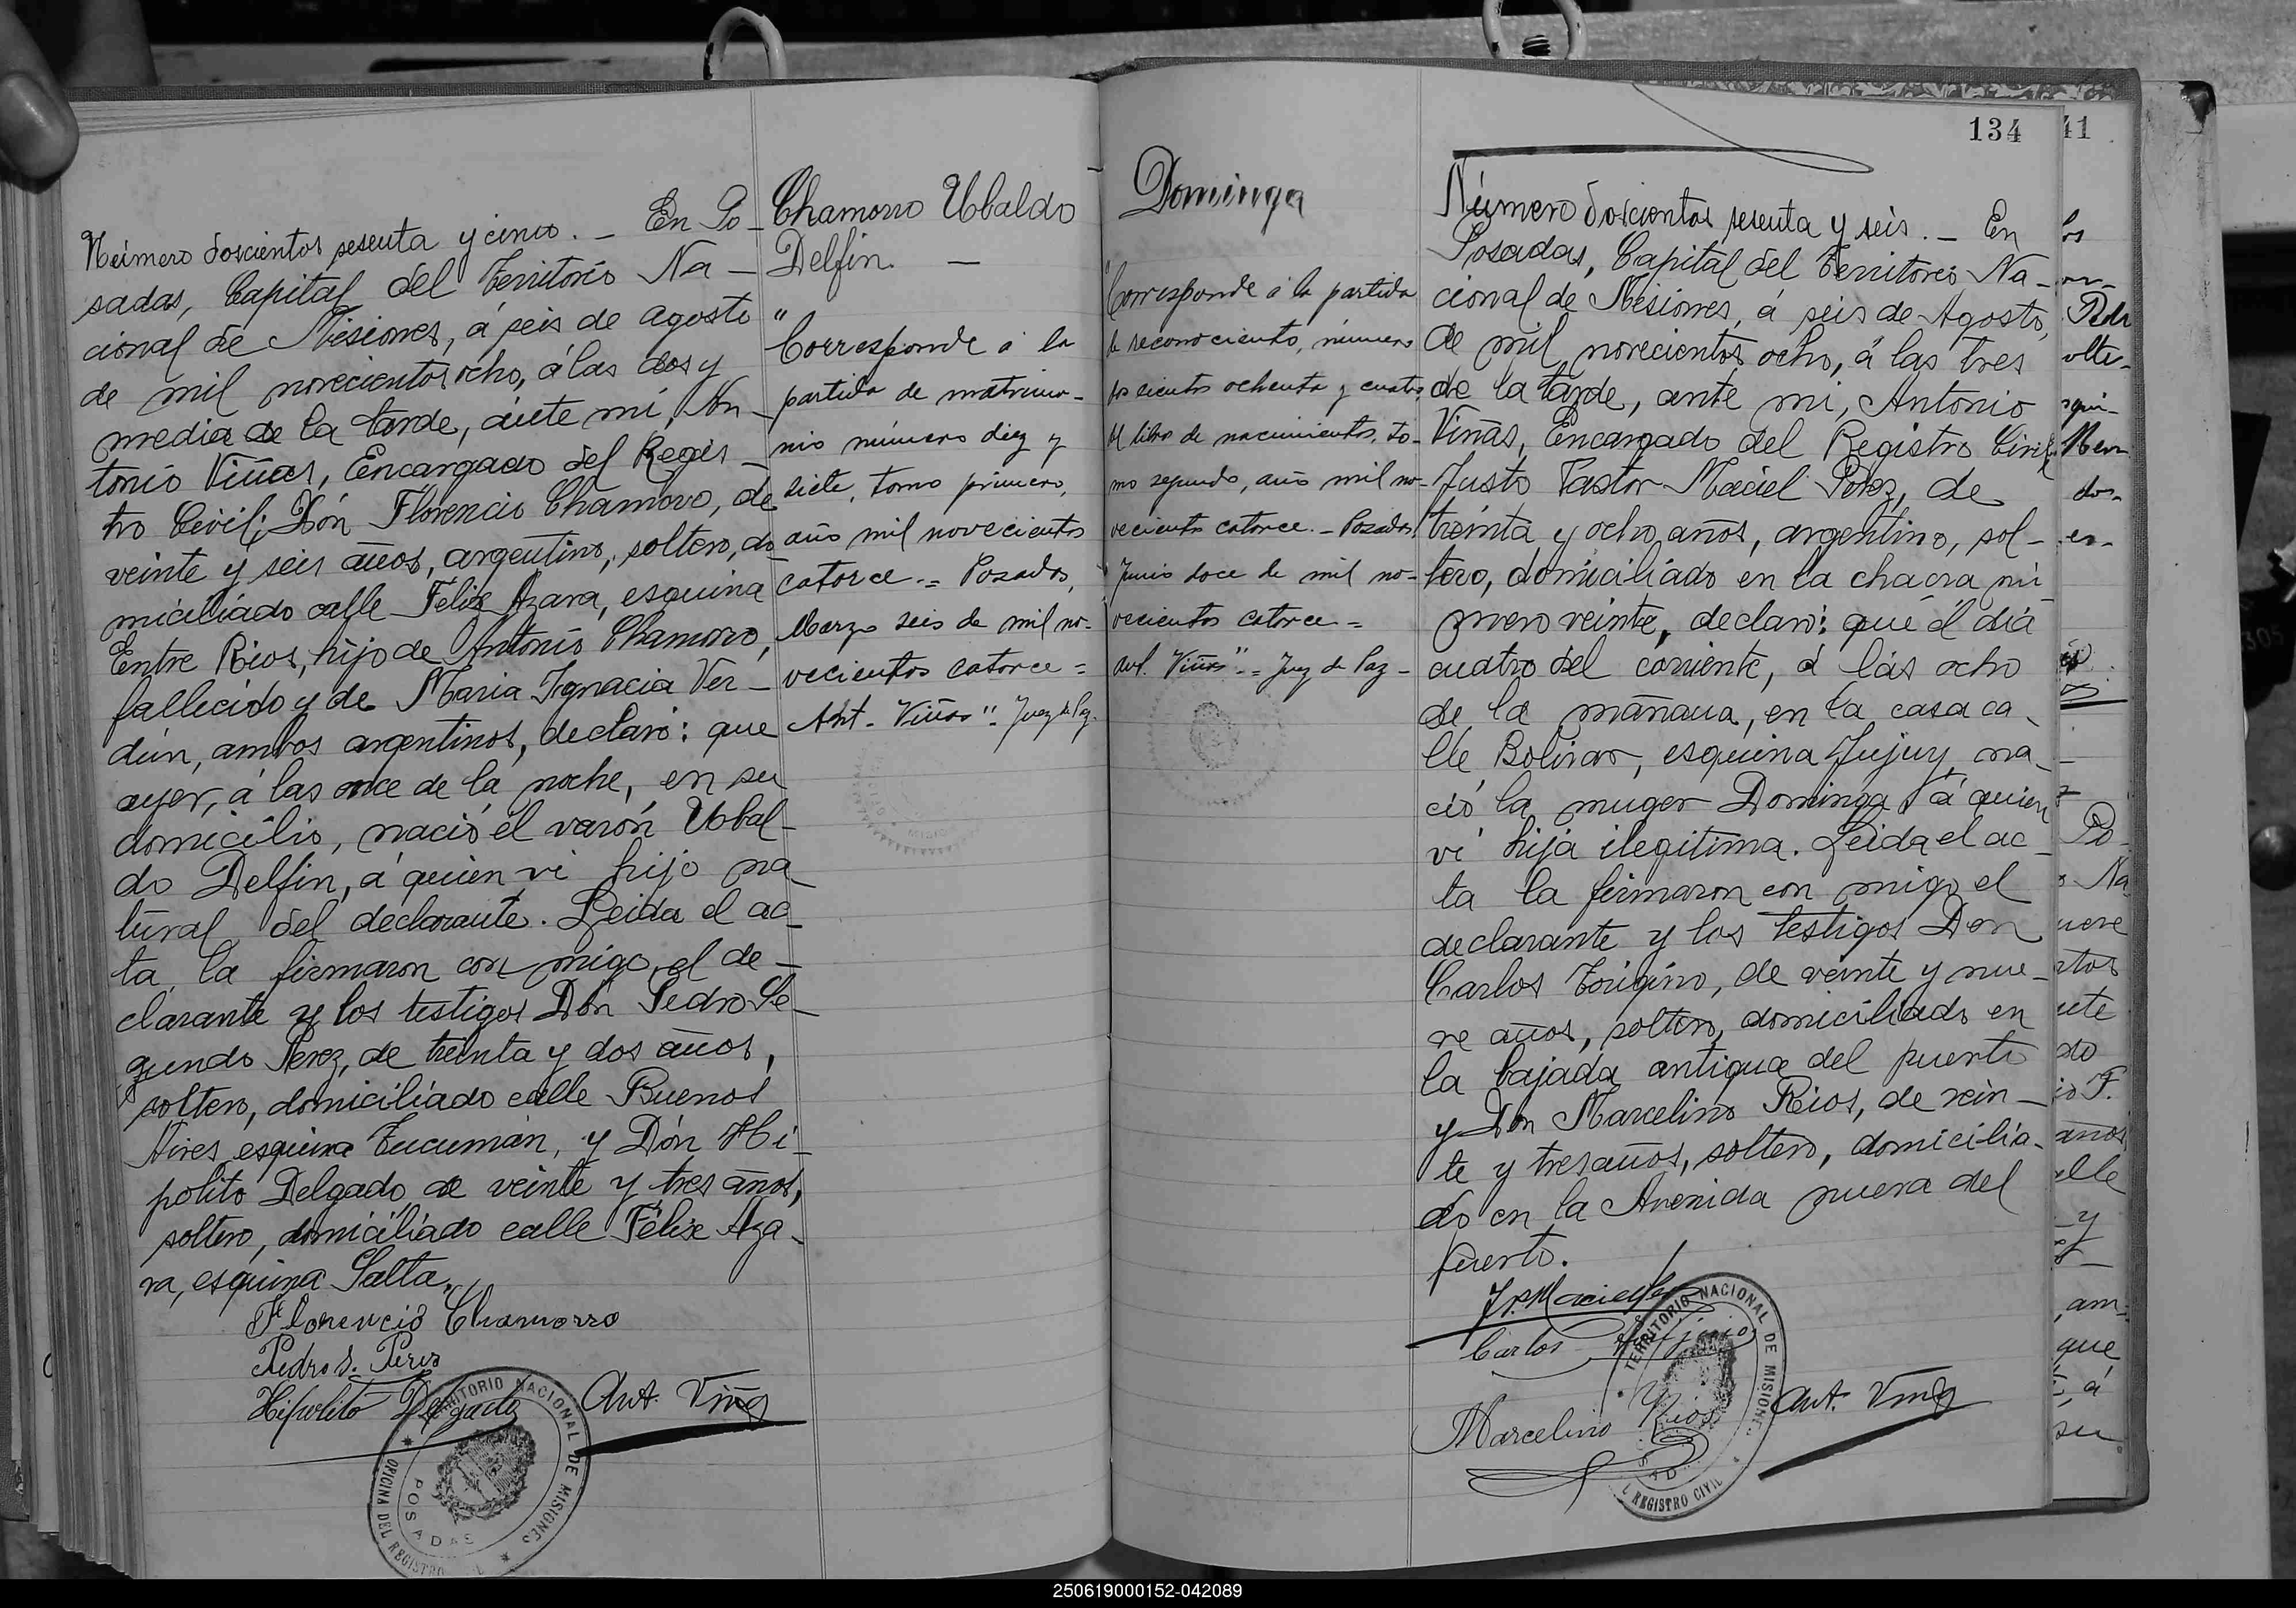 Número doscientos sesenta y cinco. _ En Po_
sadas, Capital del Territorio Na_
cional de Misiones, á seis de agosto
de mil novecientos ocho, á las dos y
media de la tarde, ante mí, An_
tonio Viñas, Encargado del Regis_
tro Civil; Dón Florencio Chamorro, de
veinte y seis años, argentino, soltero, do
miciliado calle Felix Azara, esquina
Entre Rios, hijo de Antonio Chamorro,
fallecido y de Maria Ignacia Ver_
dún, ambos argentinos, declaró: que
ayer, á las once de la noche, en su
domicilio, nació el varón Ubal_
do Delfin, á quien vi hijo na_
tural del declarante. Leida el ac_
ta la firmaron con migo el de_
clarante y los testigos Dón Pedro Se_
gundo Perez, de treinta y dos años,
soltero, domiciliado calle Buenos
Aires esquina Tucumán, y Dón Hi_
polito Delgado de veinte y tres años,
soltero, domiciliado calle Félix Aza_
ra, esquina Salta.
Florencio Chamorro
Pedro S. Perez
Hipolito Delgado
Ant. Viñas
TERRITORIO NACIONAL DE MISIONES
OFICINA DEL REGISTRO CIVIL
POSADAS
Chamorro Ubaldo
Delfin. _
"
Corresponde á la
partida de matrimo_
nio número diez y
siete, tomo primero,
año mil novecientos
catorce.= Posadas,
Marzo seis de mil no_
vecientos catorce=
Ant. Viñas".. Juez de Paz.
Dominga
"Corresponde á la partida
de reconociento, número
doscientos ochenta y cuatro,
del libro de nacimientos, to_
mo segundo, año mil no_
vecientos catorce._Posadas,
Junio doce de mil no_
vecientos catorce=
Ant. Viñas".= Juez de Paz_
134
Número doscientos sesenta y seis._ En
Posadas, Capital del Territorio Na_
cional de Misiones, á seis de Agosto,
de mil novecientos ocho, á las tres
de la tarde, ante mi, Antonio
Viñas, Encargado del Registro Civil,
Justo Pastor Maciel Pérez, de
treinta y ocho años, argentino, sol_
tero, domiciliado en la chacra nú
mero veinte, declaró: que el dia
cuatro del corriente, á las ocho
de la mañana, en la casa ca_
lle Bolivar, esquina Jujuy, na_
ció la muger Dominga, á quien
vi hija ilegitima. Leida el ac_
ta la firmaron con migo el
declarante y los testigos Don
Carlos Torigino, de veinte y nue_
ve años, soltero, domiciliado en
la bajada antigua del puerto
y Don Marcelino Rios, de vein_
te y tres años, soltero, domicilia_
do en la Avenida nueva del
puerto.
Carlos
Marcelino Rios
Ant. Viñas
TERRITORIO NACIONAL DE MISIONES
REGISTRO CIVIL
41
250619000152-042089